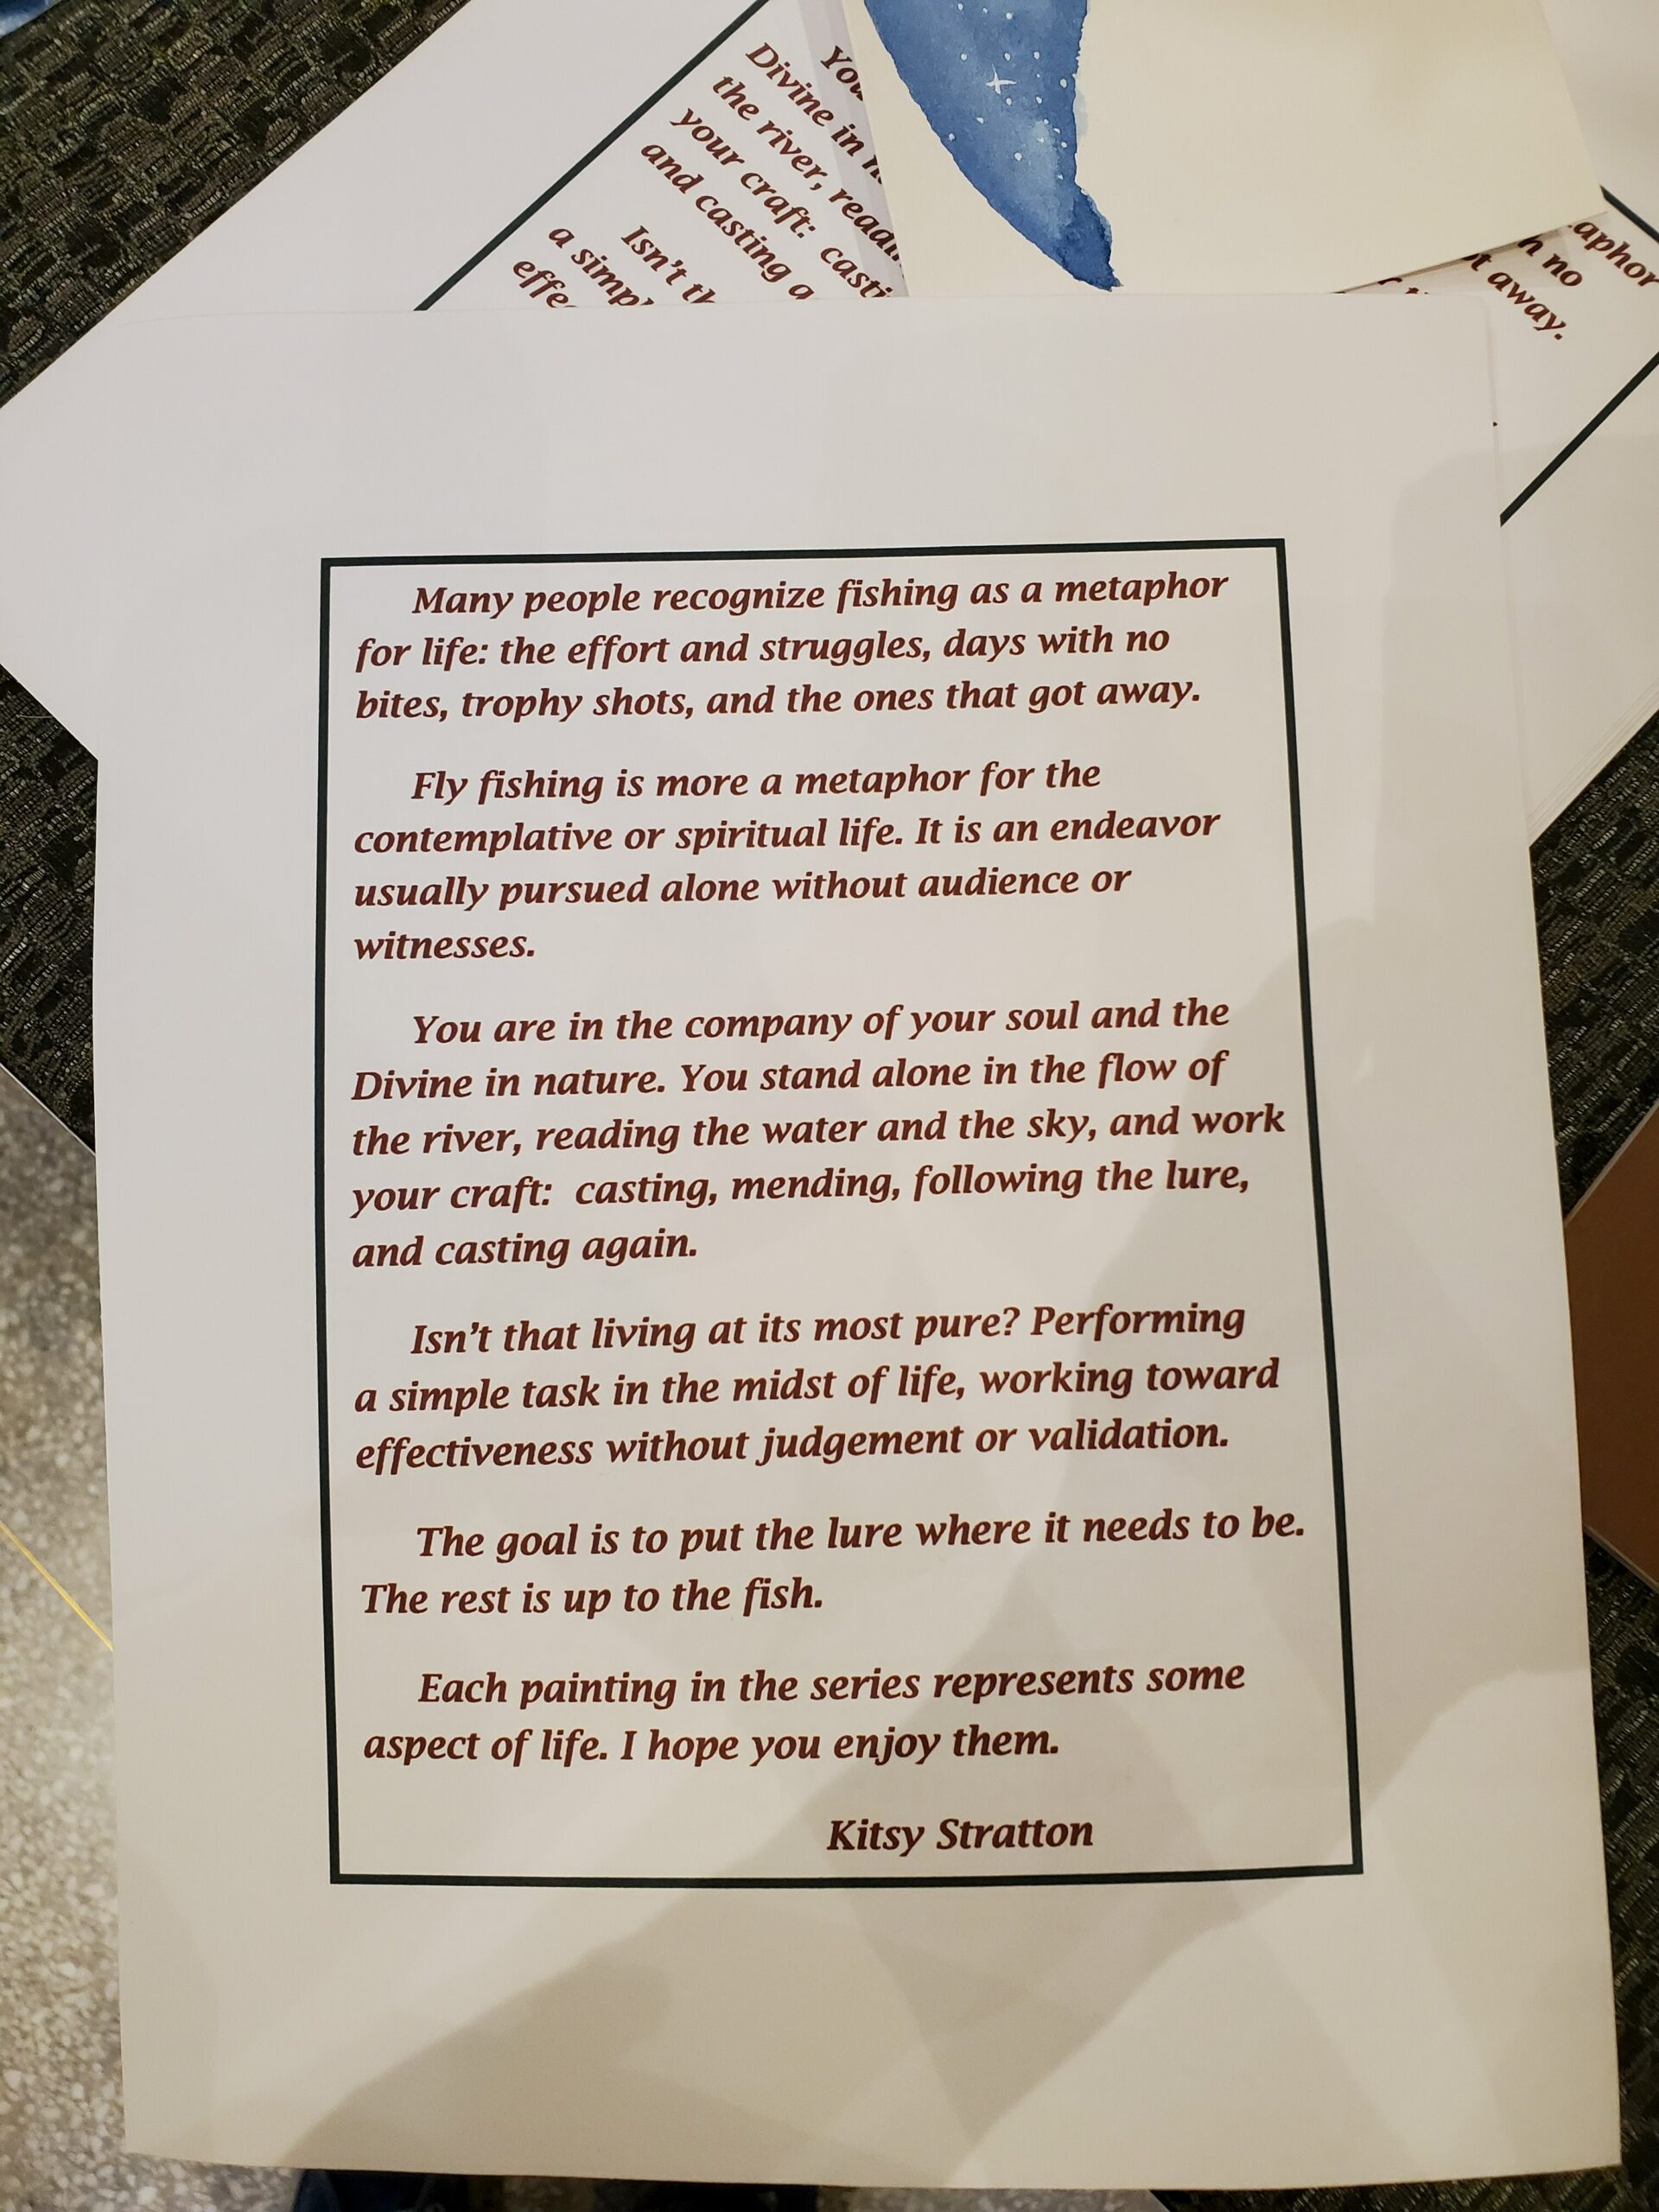 You
Divine in
the river,
your craft: casti
and casting a
Isn't th
a simpl
effe
aphor
no
away.
Many people recognize fishing as a metaphor
for life: the effort and struggles, days with no
bites, trophy shots, and the ones that got away.
Fly fishing is more a metaphor for the
contemplative or spiritual life. It is an endeavor
usually pursued alone without audience or
witnesses.
You are in the company of your soul and the
Divine in nature. You stand alone in the flow of
the river, reading the water and the sky, and work
your craft:  casting, mending, following the lure,
and casting again.
Isn't that living at its most pure? Performing
a simple task in the midst of life, working toward
effectiveness without judgement or validation.
The goal is to put the lure where it needs to be.
The rest is up to the fish.
Each painting in the series represents some
aspect of life. I hope you enjoy them.
Kitsy Stratton